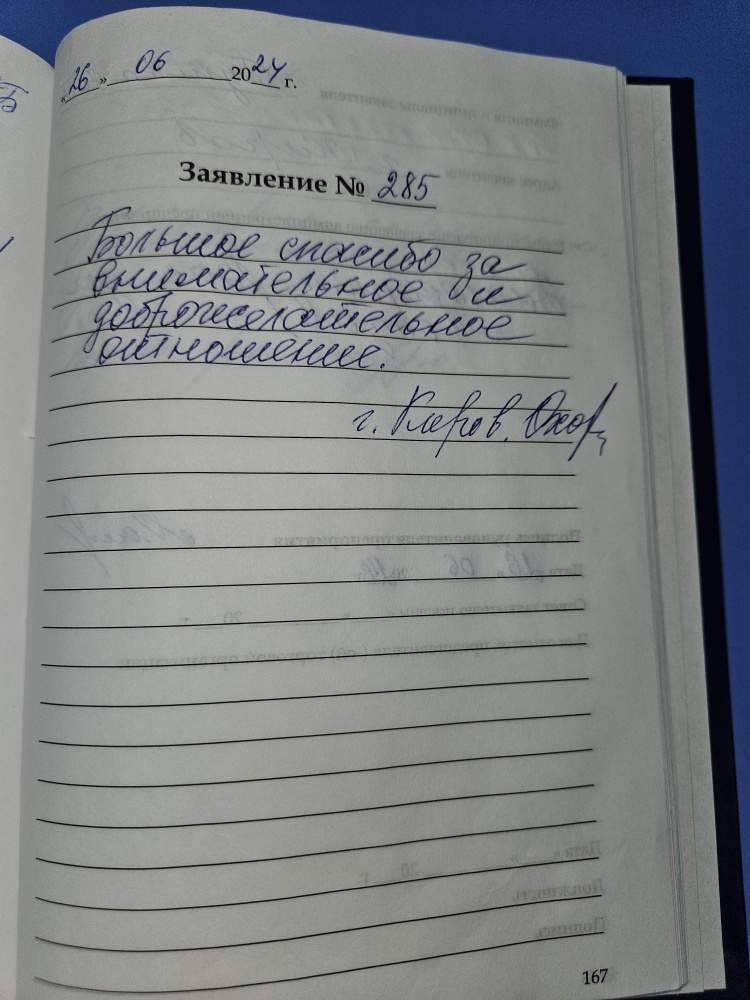 «26» 06 2024 г.
Заявление № 285
Большое спасибо за
внимательное и
доброжелательное
отношение.
г. Киров.
167